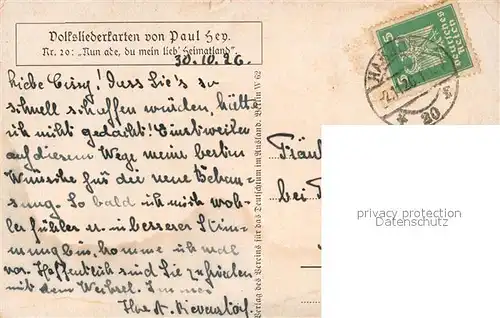 Volksliederkarten von Paul Hey.
Nr. 20: „Nun ade, du mein lieb' Heimatland".
30.10.26.
Liebe Cissy! Dass Sie's so
schnell schaffen würden, hätte
ich nicht gedacht! Einstweilen
auf diesem Wege meine besten
Wünsche für die neue Behau-
sung. So bald ich mich woh-
ler fühle u. in besserer Stim-
mung bin, komme ich mal
vor. Hoffentlich sind Sie zufrieden
mit dem Wechsel.
Ihre A.
Verlag des Vereins für das Deutschtum im Ausland, Berlin W 62
Deutsches Reich
5 5
20
Fräul
bei
privacy protection
Datenschutz